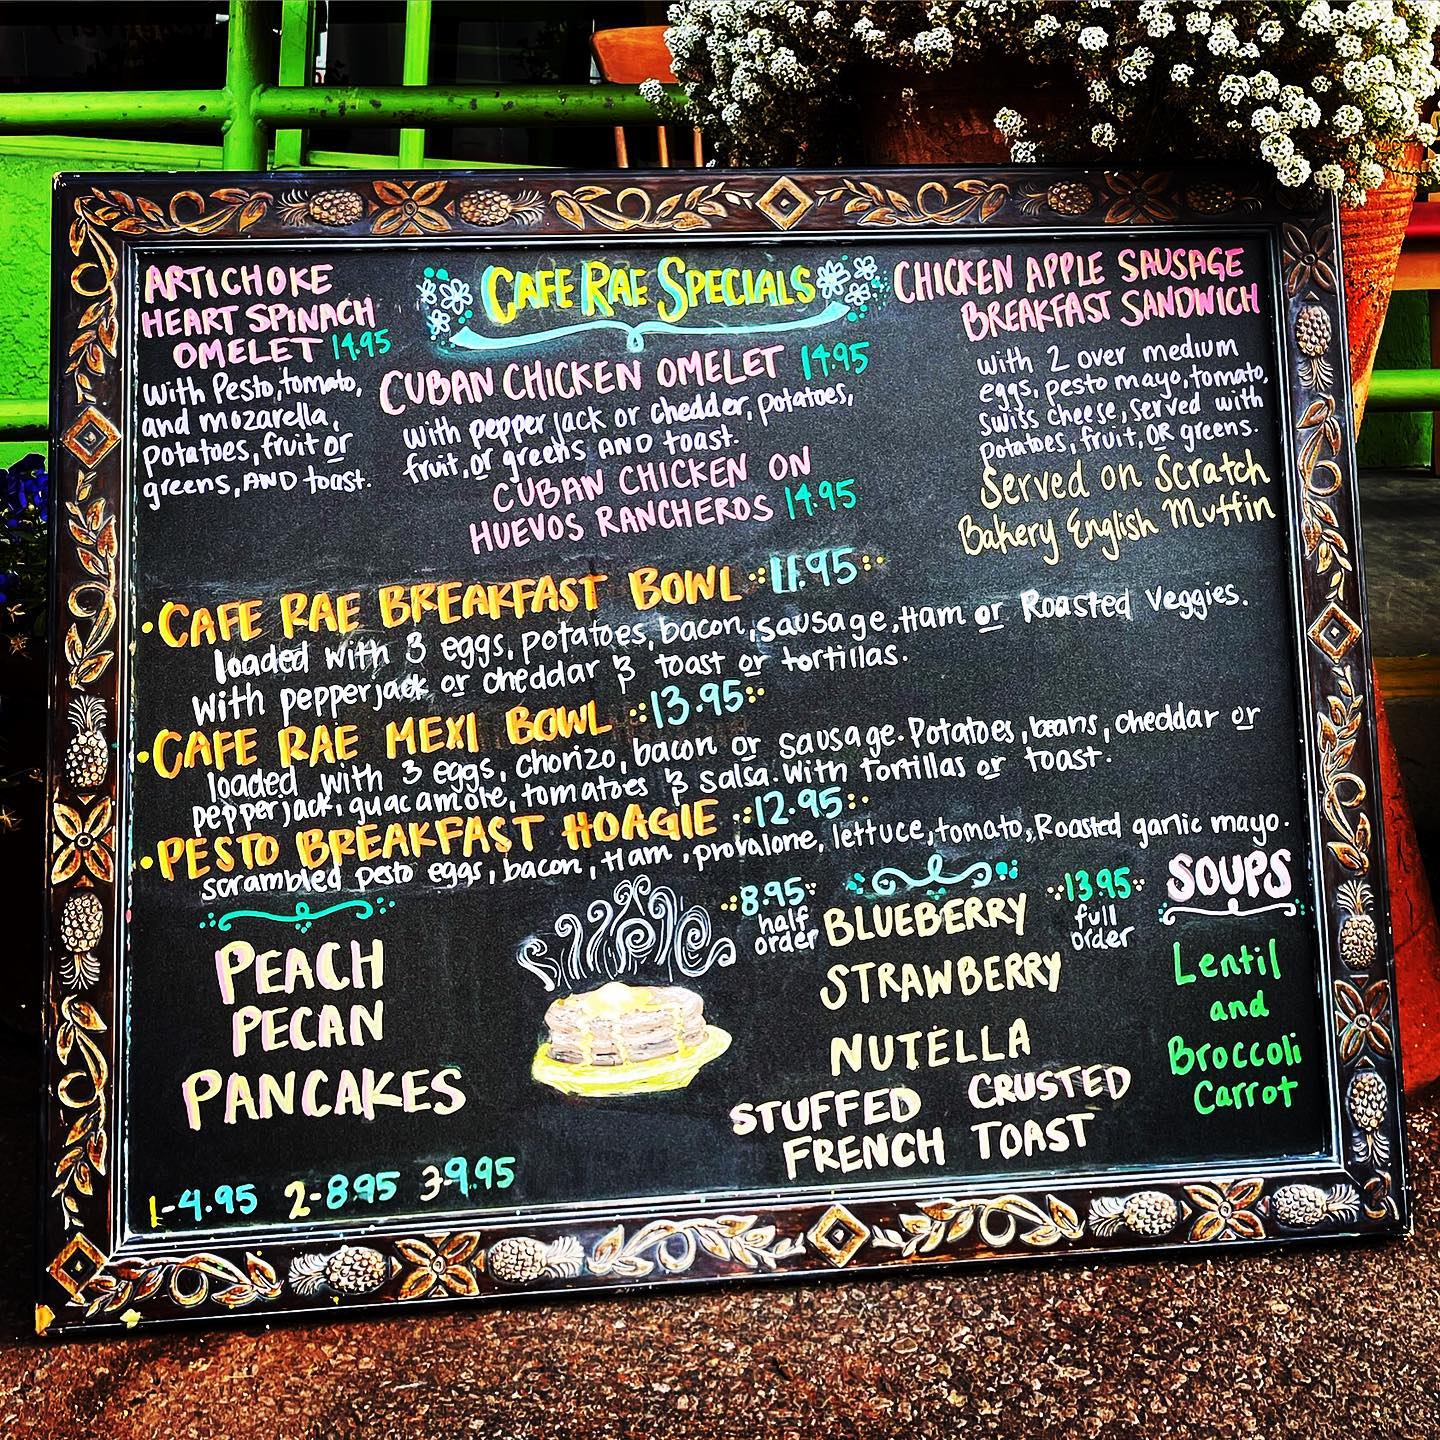 CAFE RAE SPECIALS
ARTICHOKE
HEART SPINACH
OMELET 14.95
with Pesto, tomato,
and mozarella,
potatoes, fruit or
greens, AND toast.
CUBAN CHICKEN OMELET 14.95
with pepper jack or chedder, potatoes,
fruit, or greens AND toast.
CUBAN CHICKEN ON
HUEVOS RANCHEROS 14.95
CHICKEN APPLE SAUSAGE
BREAKFAST SANDWICH
with 2 over medium
eggs, pesto mayo, tomato,
swiss cheese, served with
potatoes, fruit, OR greens.
Served on Scratch
Bakery English Muffin
• CAFE RAE BREAKFAST BOWL 11.95
loaded with 3 eggs, potatoes, bacon, sausage, Ham or Roasted veggies.
with pepperjack or cheddar & toast or tortillas.
• CAFE RAE MEXI BOWL 13.95
loaded with 3 eggs, chorizo, bacon or sausage. Potatoes, beans, cheddar or
pepperjack, guacamole, tomatoes & salsa. With tortillas or toast.
• PESTO BREAKFAST HOAGIE 12.95
scrambled pesto eggs, bacon, Ham, provalone, lettuce, tomato, Roasted garlic mayo.
PEACH
PECAN
PANCAKES
1-4.95 2-8.95 3-9.95
8.95 half order
BLUEBERRY
13.95 full order
STRAWBERRY
NUTELLA
STUFFED CRUSTED
FRENCH TOAST
SOUPS
Lentil
and
Broccoli
Carrot